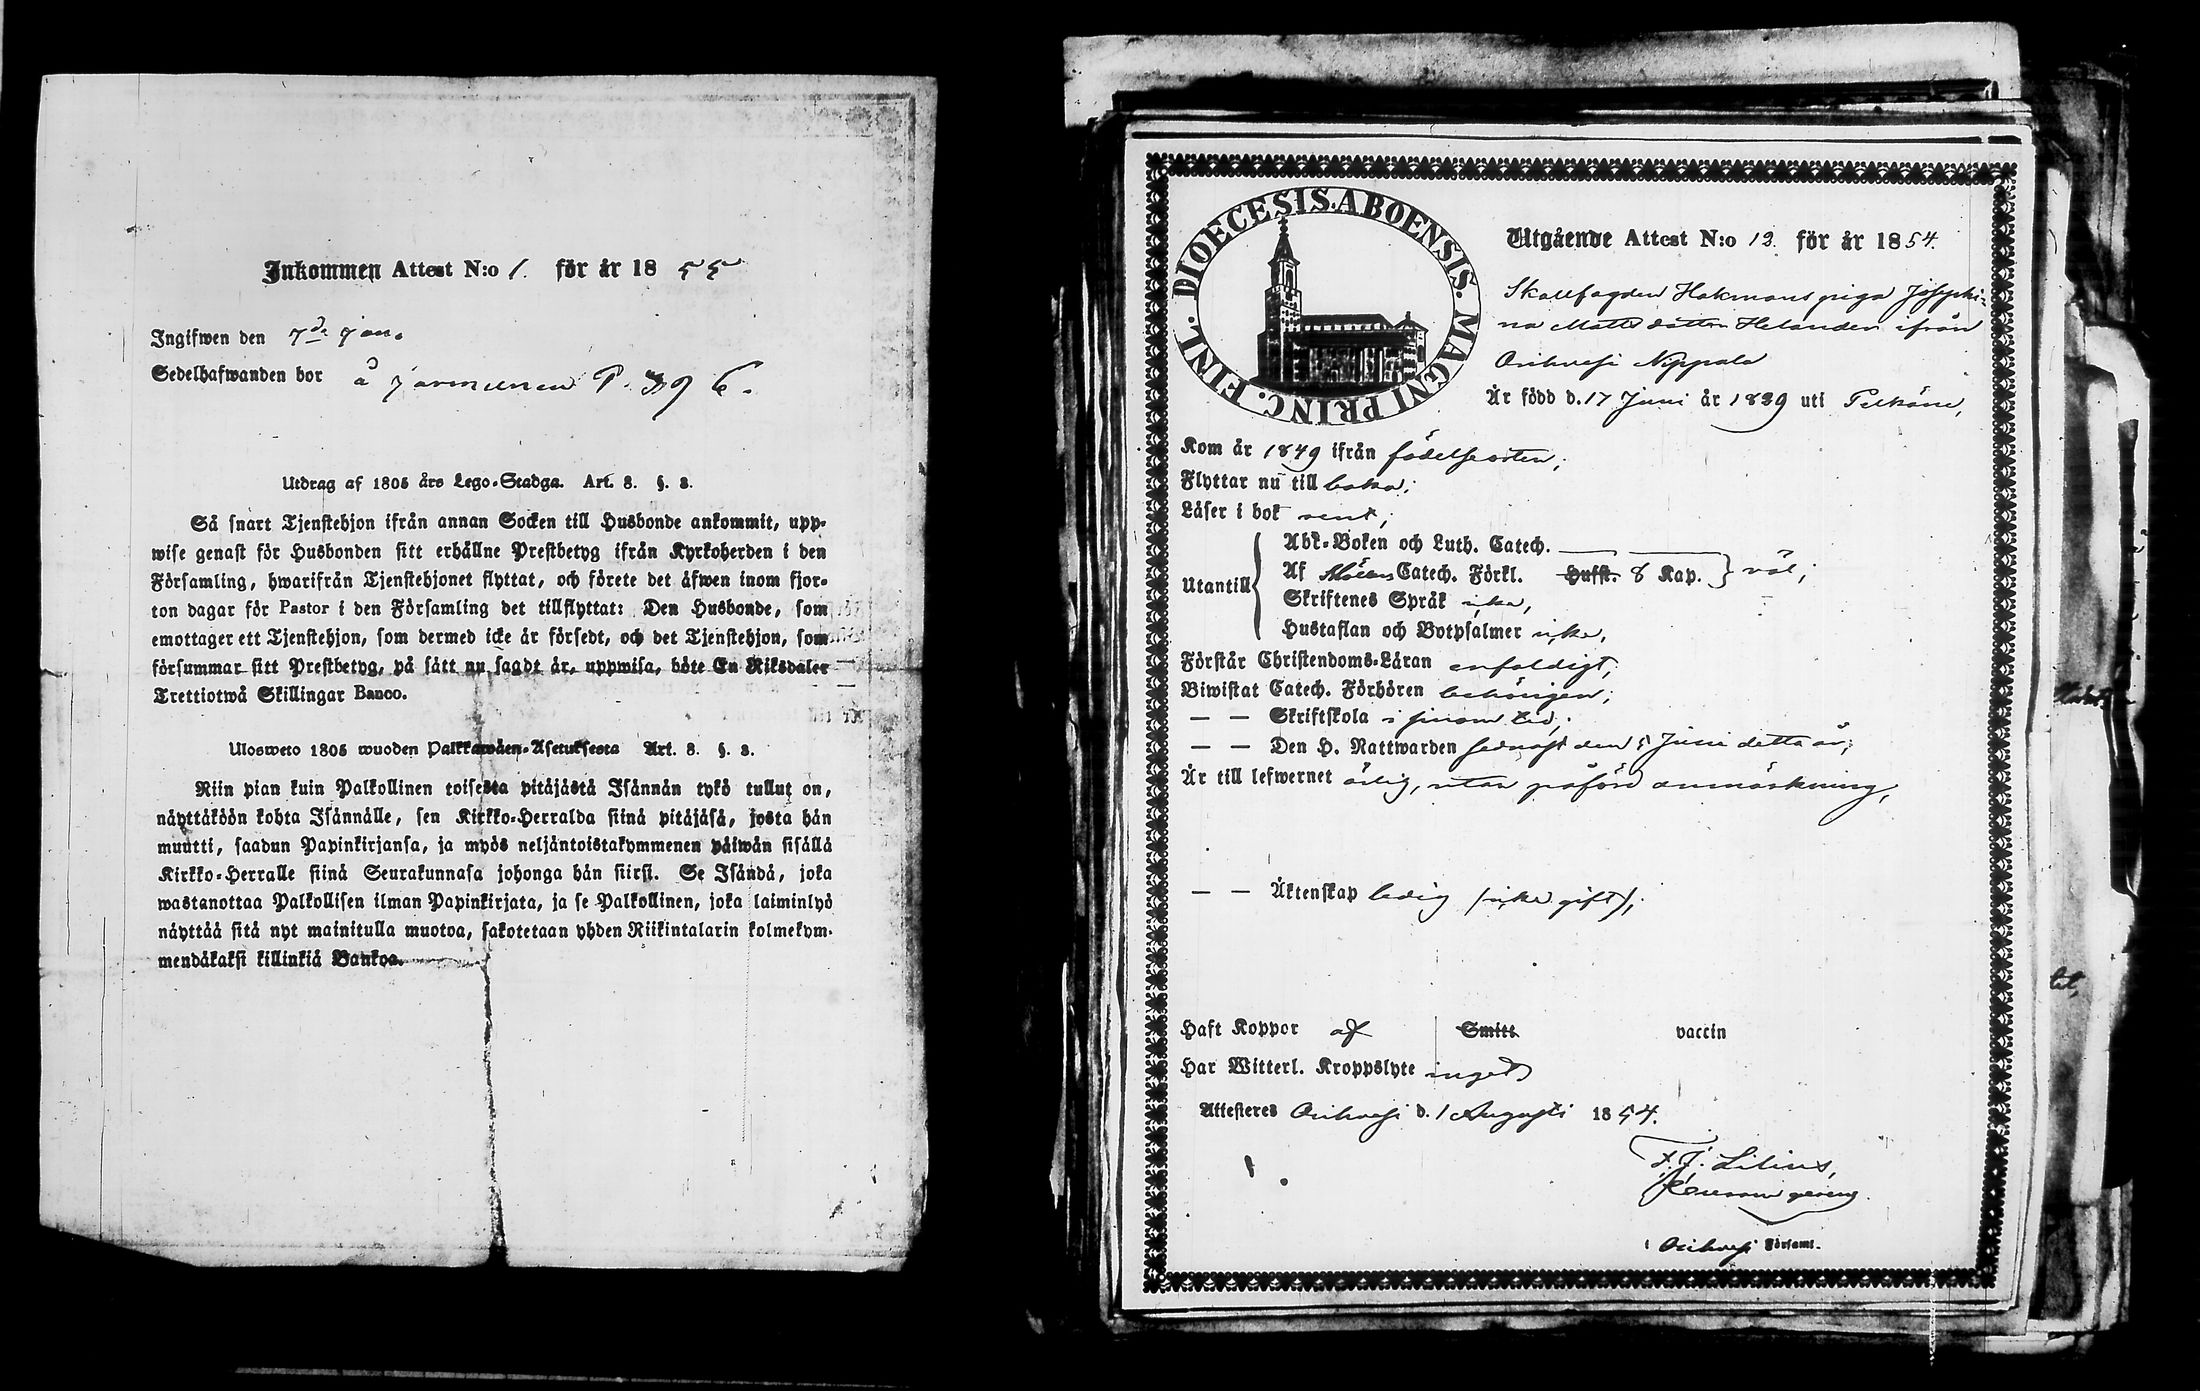 Inkommen Attest N:o 1. för år 1855
Ingifwen den 7de Jan.
Sedelhafwanden bor å P. 396.
Utdrag af 1805 års Lego-Stadga. Art. 8. §. 3.
Så snart Tjenstehjon ifrån annan Socken till Husbonde ankommit, upp-
wise genast för Husbonden sitt erhållne Prestbetyg ifrån Kyrkoherden i den
Församling, hwarifrån Tjenstehjonet flyttat, och förete det äfwen inom fjor-
ton dagar för Pastor i den Församling det tillflyttat: Den Husbonde, som
emottager ett Tjenstehjon, som dermed icke är försedt, och det Tjenstehjon, som
försummar sitt Prestbetyg, på sätt nu sagdt är, uppwisa, böte En Riksdaler
Trettiotwå Skillingar Banco.
Ulosweto 1805 wuoden Palkkawäen-Asetuksesta Art. 8. §. 3.
Niin pian kuin Palkollinen toisesta pitäjästä Isännän tykö tullut on,
näyttäköön kohta Isännälle, sen Kirkko-Herralda siinä pitäjäsä, josta hän
muutti, saadun Papinkirjansa, ja myös neljäntoistakymmenen päiwän sisällä
Kirkko-Herralle siinä Seurakunnasa johonga hän siirsi. Se Isändä, joka
wastanottaa Palkollisen ilman Papinkirjata, ja se Palkollinen, joka laiminlyö
näyttää sitä nyt mainitulla muotoa, sakotetaan yhden Riikintalarin kolmekym-
mendäkaksi killinkiä Bankoa.
DIOECESIS. ABOENSIS. MAGNI PRINC. FINL.
Utgående Attest N:o 12 för år 1854.
Skallfogden Hakmans piga Josephi-
na Matts dotter Helander ifrån
Orihvesi Nippala
Är född d. 17 Juni år 1839 uti Pelkäne,
Kom år 1849 ifrån födelseorten;
Flyttar nu till baka;
Läser i bok rent;
Utantill
Abk-Boken och Luth. Catech. — —
Af Möllers Catech. Förkl. Hufst. 8 Kap. väl;
Skriftenes Språk icke,
Hustaflan och Botpsalmer icke,
Förstår Christendoms-Läran enfaldigt;
Biwistat Catech. Förhören behörigen;
— — Skriftskola i sinom tid;
— — Den H. Nattwarden sednast den 5 Juni detta år;
Är till lefwernet ärlig, utan påförd anmärkning,
— — Äktenskap ledig (icke gift);
Haft Koppor af Smitt vaccin
Har Witterl. Kroppslyte inget
Attesteres Orihvesi d. 1 Augusti 1854.
F. J. Lilius,
i Orihvesi Församl.